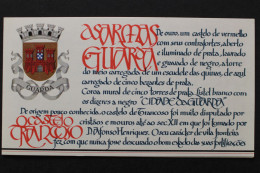 AS ARMAS
E GUARDA
De ouro, um castelo de vermelho
com seus contrafortes, aberto
e iluminado de prata, lavrado
e guisado de negro, a torre
do meio carregado de um escudete das quinas, de azul
carregado de cinco besantes de prata.
Coroa mural de cinco torres de prata. Listel branco com
os dizeres a negro "CIDADE DA GUARDA"
GUARDA
O CASTELO
TRANCOSO
De origem pouco conhecida, o castelo de Trancoso foi muito disputado por
cristãos e mouros até ao sec. XII em que foi tomado por
D. Afonso Henriques. O seu carácter de vila fronteira
fez com que nunca fosse descuidado